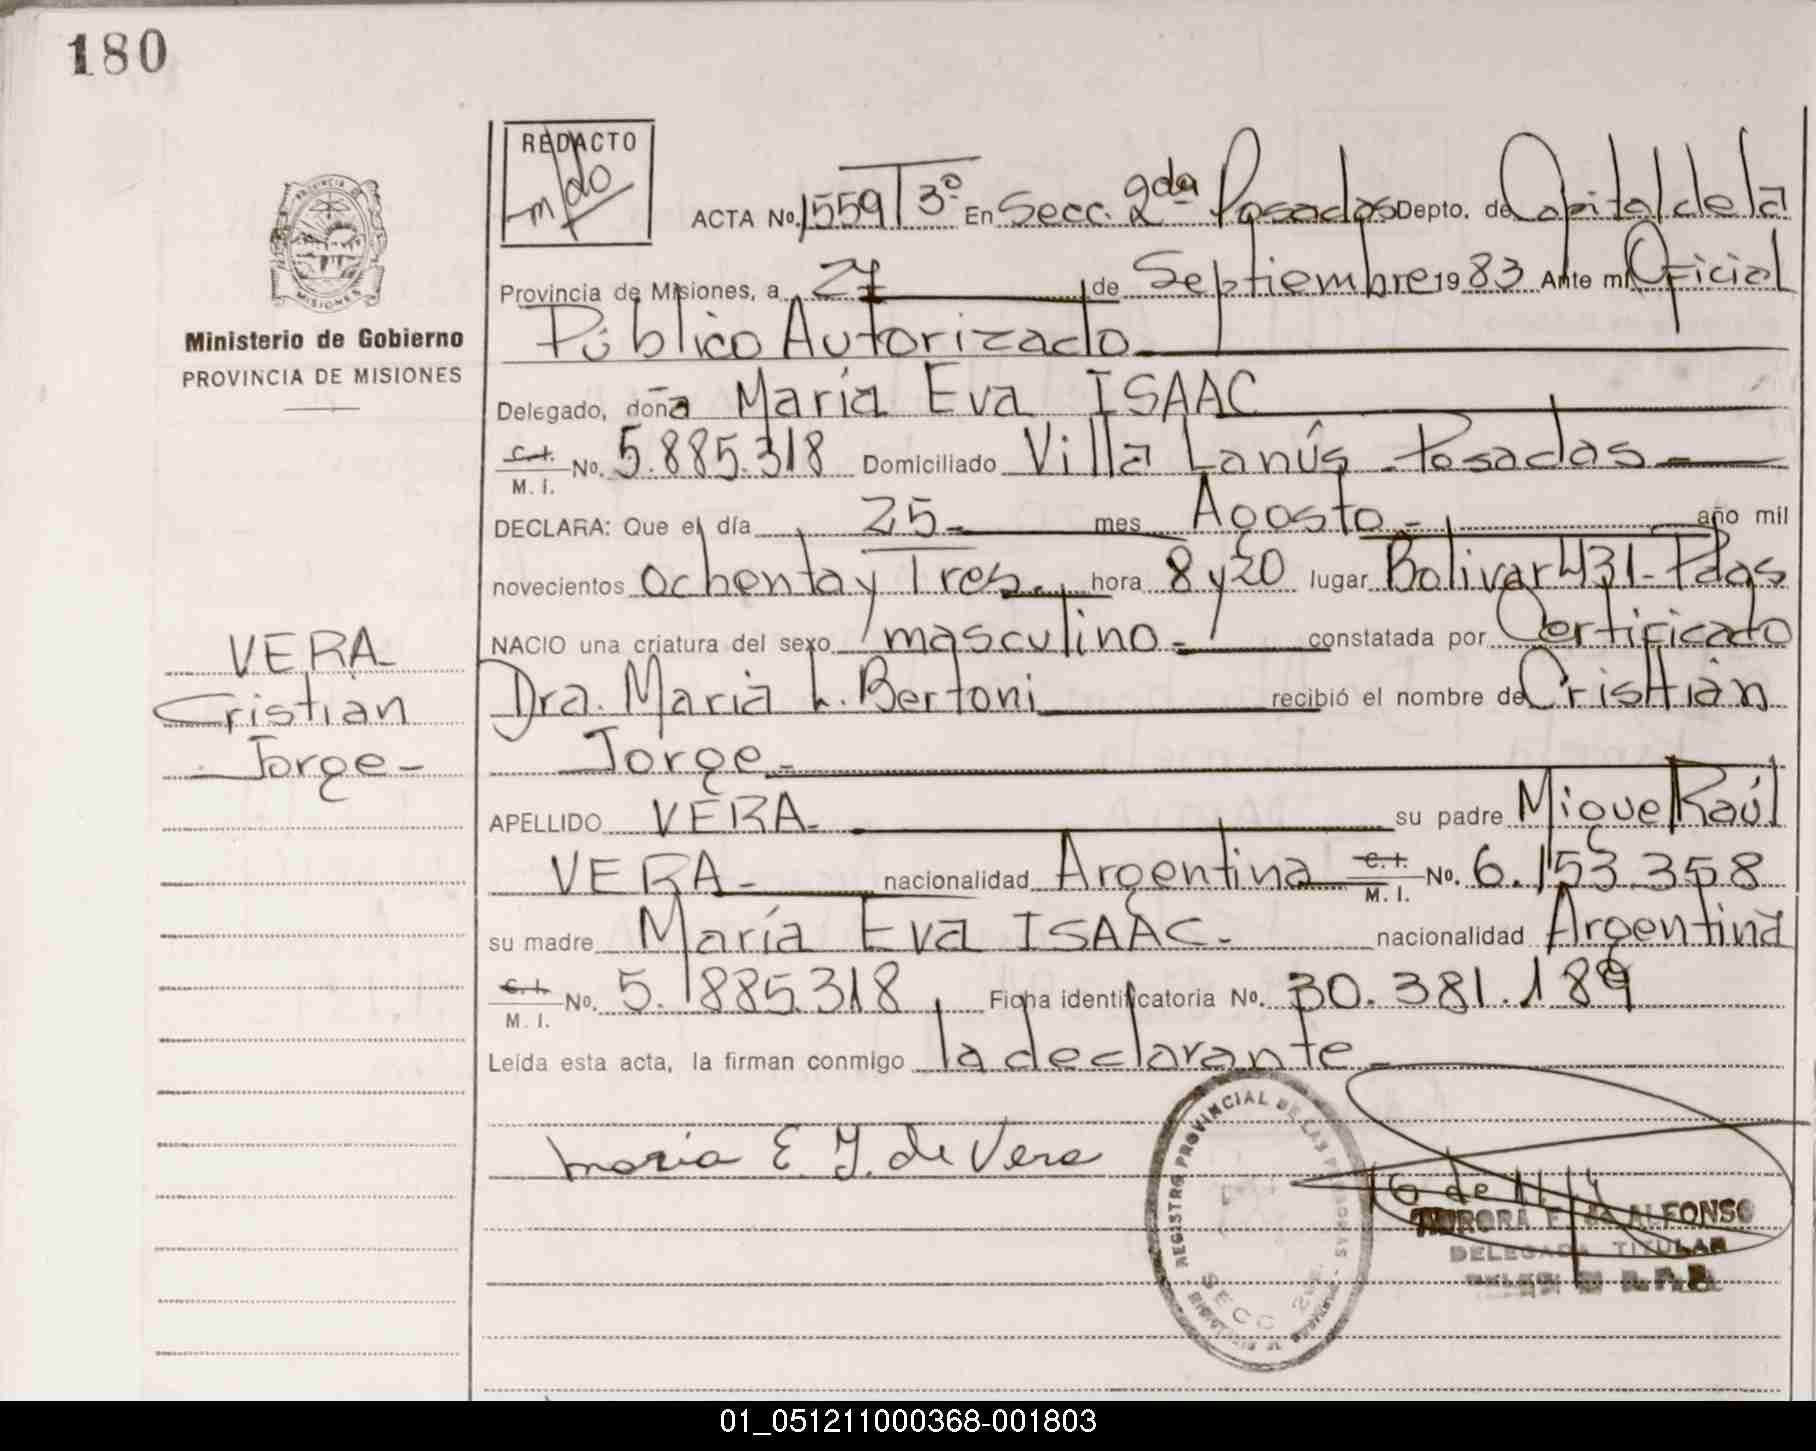 180
REDACTO
m/do
ACTA No. 1559 T 3º En Secc. 2da Posadas Depto. de Capital de la
Provincia de Misiones, a 27 de Septiembre 1983 Ante mi Oficial
Público Autorizado
Ministerio de Gobierno
PROVINCIA DE MISIONES
Delegado, doña María Eva ISAAC
C.I. M. I. No. 5.885.318 Domiciliado Villa Lanús - Posadas
DECLARA: Que el día 25 mes Agosto - año mil
novecientos ochenta y Tres hora 8 y 20 lugar Bolivar 431 - Pdas
NACIO una criatura del sexo masculino constatada por Certificado
VERA
Cristian
Jorge -
Dra. Maria L. Bertoni recibió el nombre de Cristian
Jorge -
APELLIDO VERA - su padre Miguel Raúl
VERA - nacionalidad Argentina C.I. M. I. No. 6.153.358
su madre María Eva ISAAC - nacionalidad Argentina
C.I. M. I. No. 5.885.318 Ficha identificatoria No. 30.381.189
Leída esta acta, la firman conmigo la declarante
Maria E. I. de Vera
REGISTRO PROVINCIAL DE LAS PERSONAS
SECC 2da.
ALFONSO
DELEGADA TITULAR
01_051211000368-001803